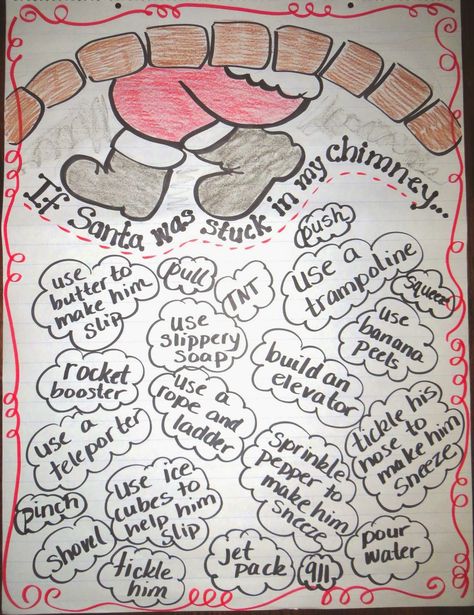 If Santa was stuck in my chimney...
push
use
butter to
make him
slip
pull
TNT
use a
trampoline
squeeze
use
slippery
soap
use
banana
peels
rocket
booster
use a
rope and
ladder
build an
elevator
use a
teleporter
tickle his
nose to
make him
sneeze
use ice
cubes to
help him
slip
Sprinkle
pepper to
make him
sneeze
pinch
shovel
tickle
him
jet
pack
911
pour
water